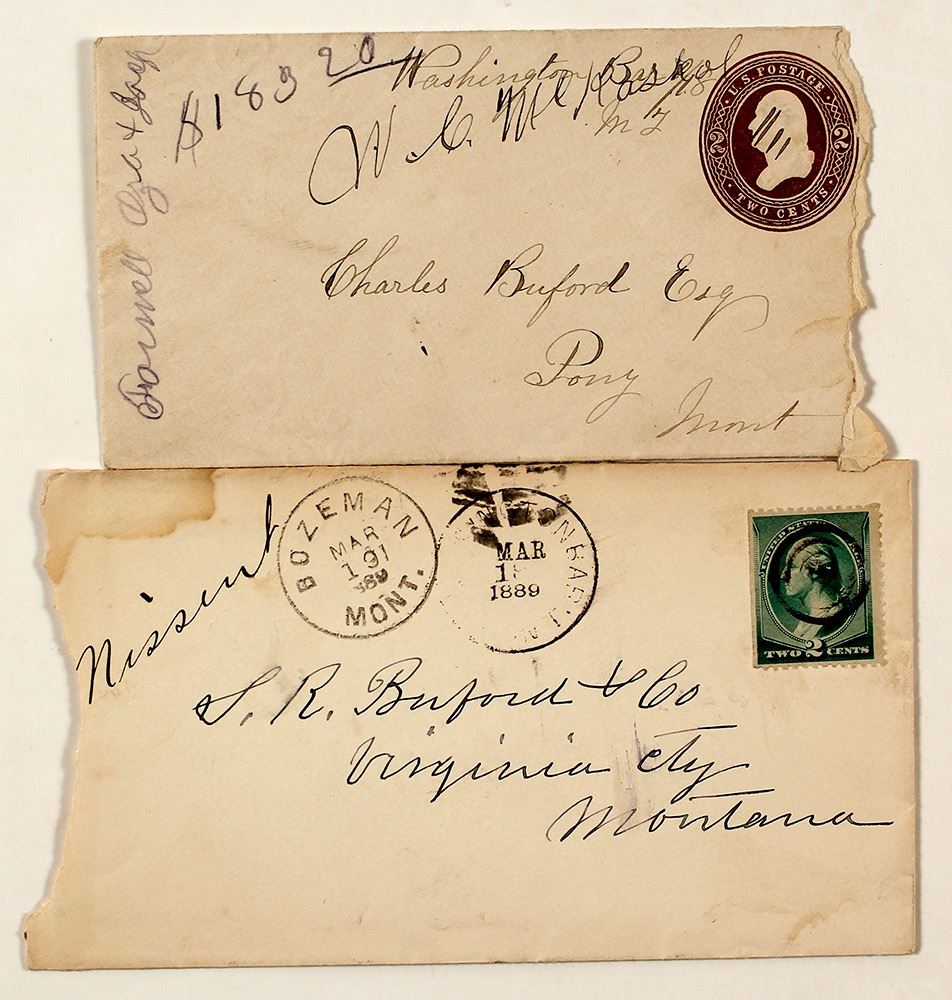 $183 20
Washington Bar
M T
W. C. McKaskol
U.S. POSTAGE
2 2
TWO CENTS
Charles Buford Esq
Pony
Mont
Nissent
BOZEMAN
MAR
19
MONT.
MAR
1889
UNITED STATES
TWO 2 CENTS
S. R. Buford & Co
Virginia Cty
Montana